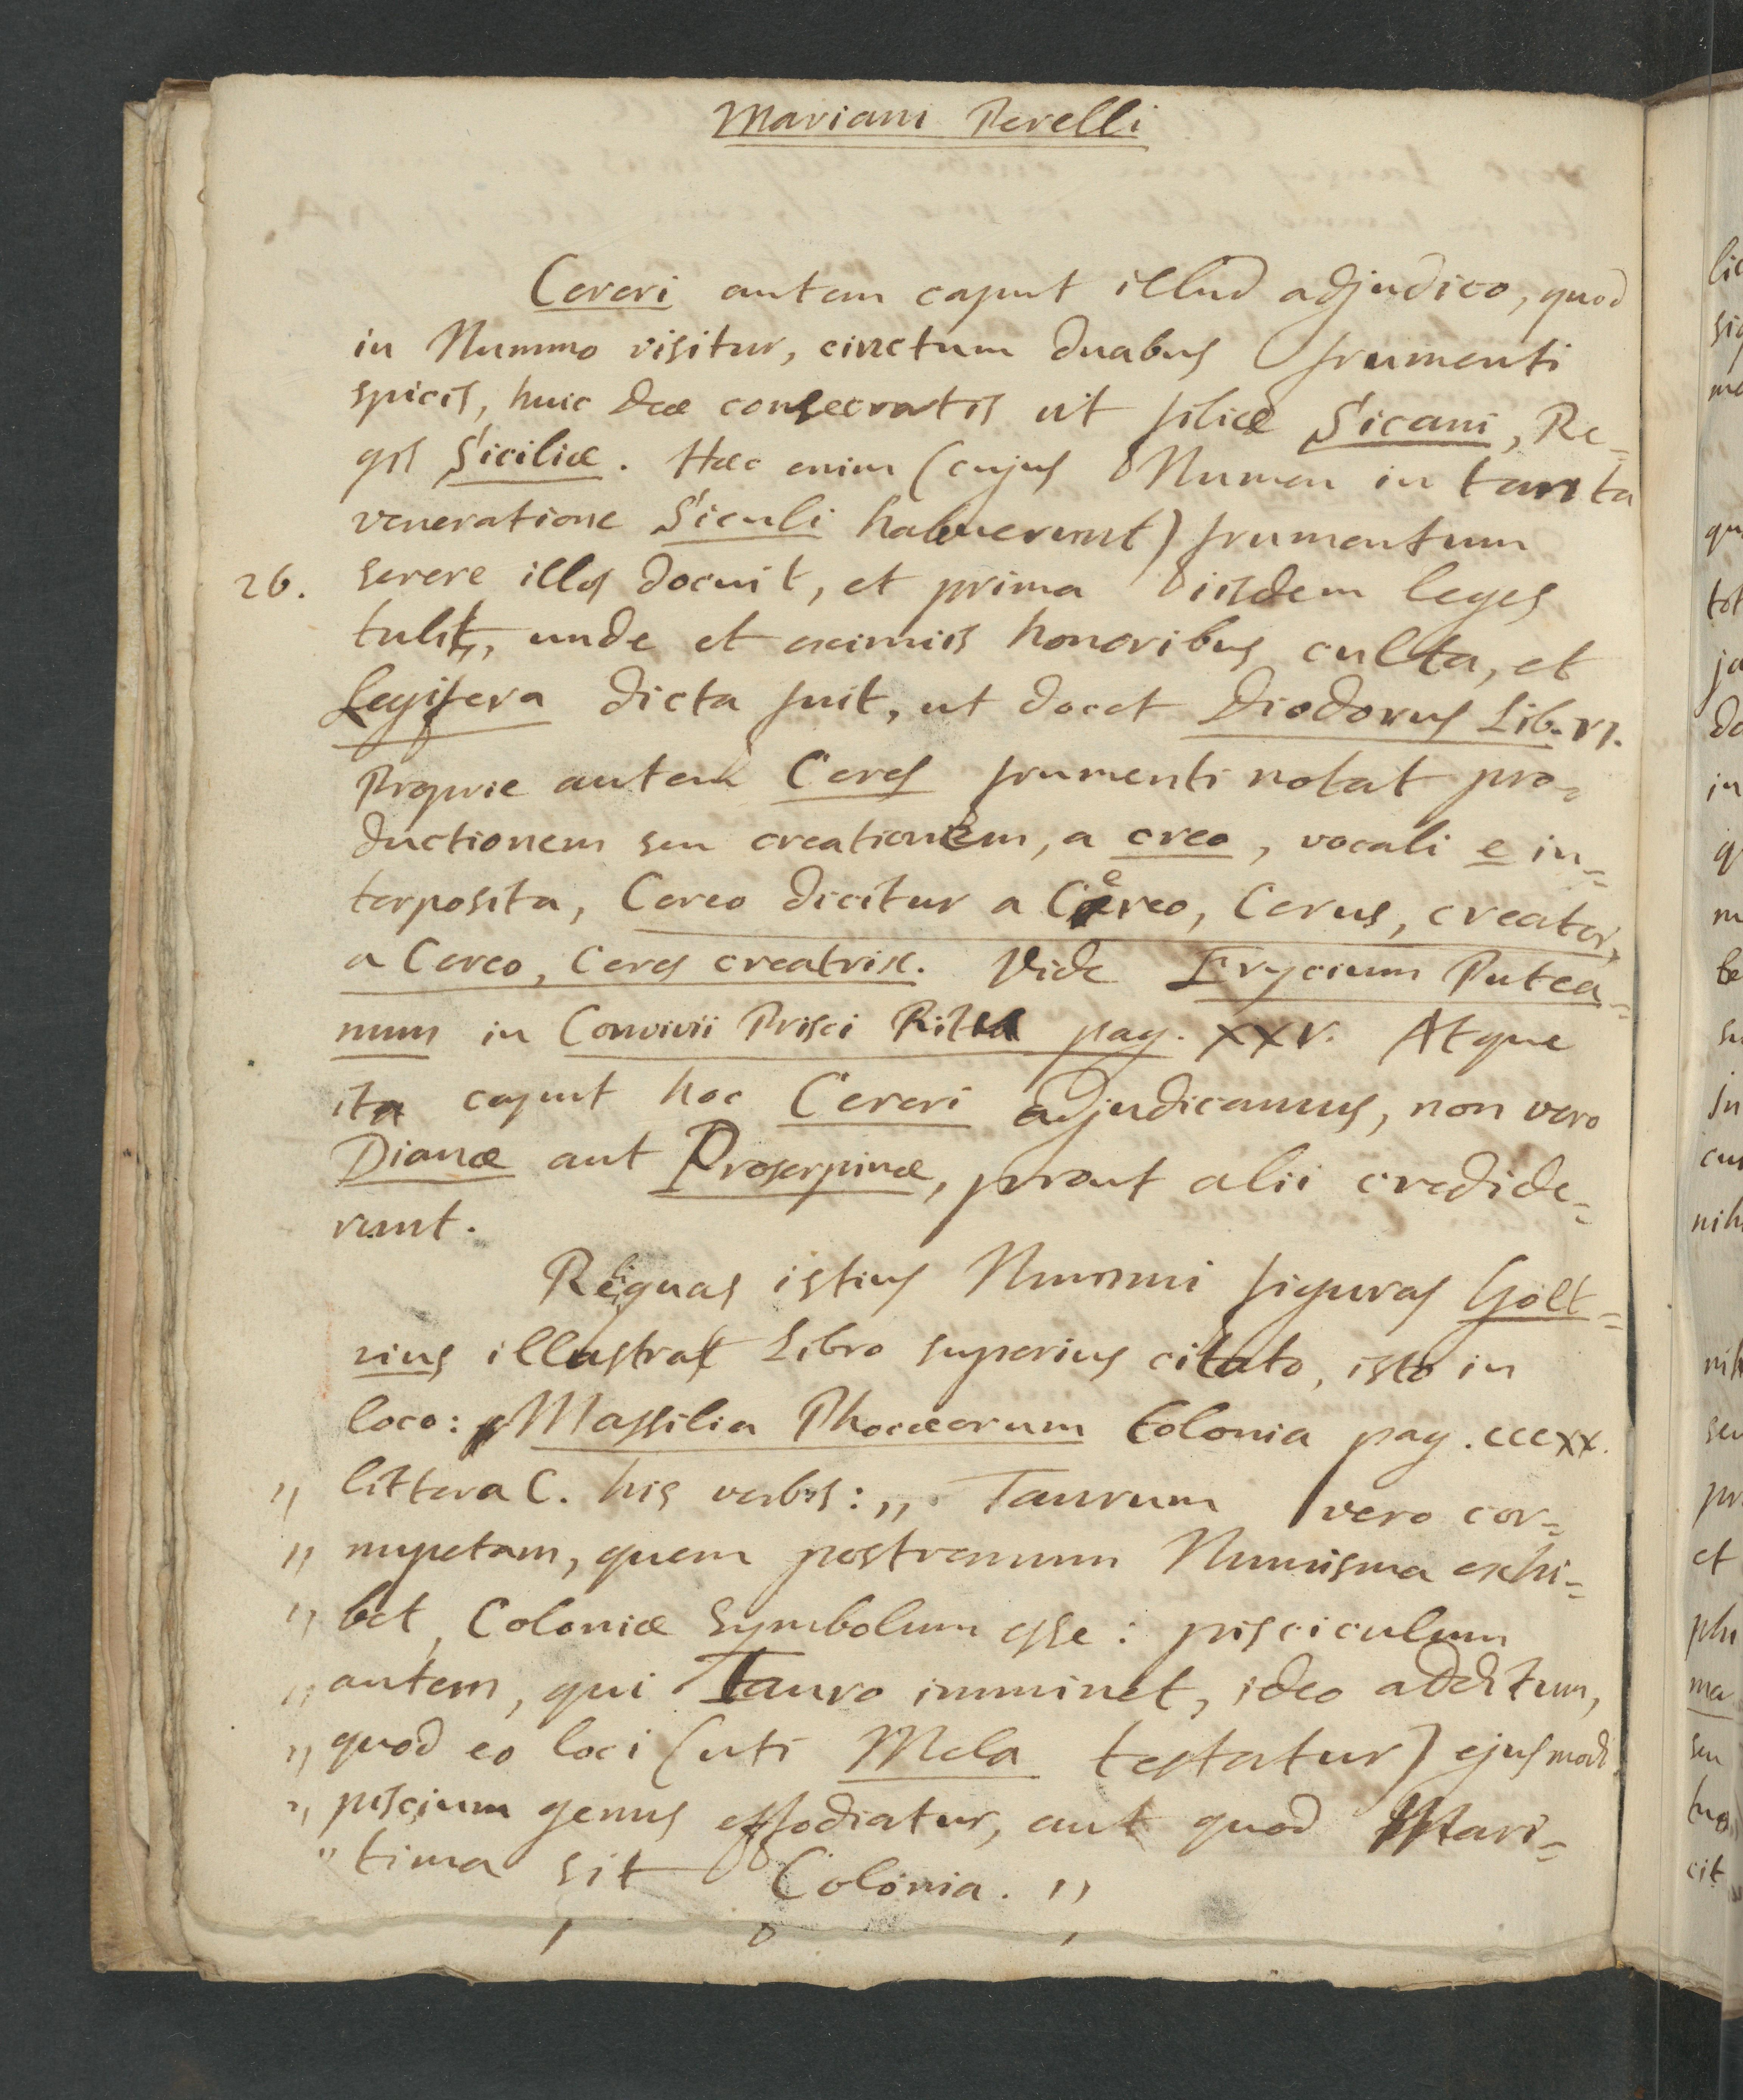 Mariani Perelli
Cereri autem caput illud adjudico, quod
in Nummo visitur, cinctum duabus frumenti
spicis, huic Deæ consecratis ut filiæ Sicani, Re=
gis Siciliæ. Hæc enim (cujus Numen in tanta
veneratione Siculi habuerunt) frumentum
26. serere illos docuit, et prima iisdem leges
tulit, unde et eximiis honoribus culta, et
Legifera dicta fuit, ut docet Diodorus Lib. VI.
Proprie autem Ceres frumenti notat pro=
ductionem seu creationem, a creo, vocali e in=
terposita, Cereo dicitur a Cereo, Cerus, creator,
a Cereo, Ceres creatrix. Vide Erycium Putea=
num in Convivii Prisci Ritu pag. XXV. Atque
ita caput hoc Cereri adjudicamus, non vero
Dianæ aut Proserpinæ, prout alii credide=
runt.
Reliquas istius Nummi figuras Golt=
zius illustrat Libro superius citato, isto in
loco: Massilia Phocæorum Colonia pag. CCCXX.
„ littera C. his verbis: „ Taurum vero cor=
„ nupetam, quem postremum Numisma exhi=
„ bet, Coloniæ Symbolum esse: pisciculum
„ autem, qui Tauro imminet, ideo additum,
„ quod eo loci (uti Mela testatur) ejusmodi
„ piscium genus effodiatur, aut quod Mari=
„ tima sit Colonia. „